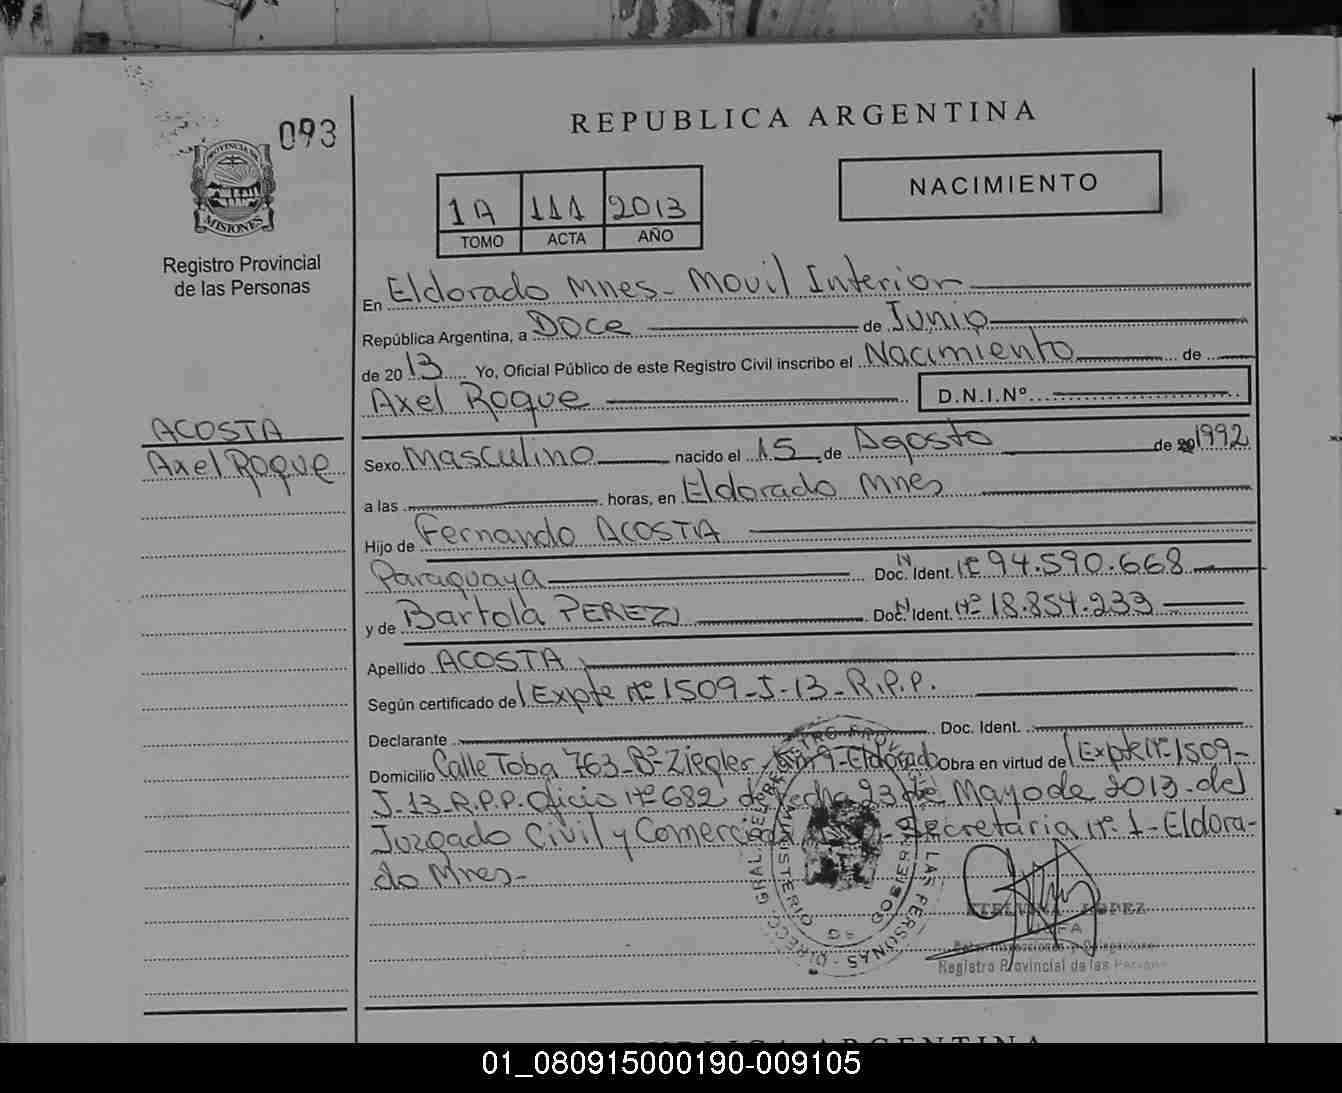 REPUBLICA ARGENTINA
093
PROVINCIA DE
MISIONES
Registro Provincial
de las Personas
1A 111 2013
TOMO ACTA AÑO
NACIMIENTO
En Eldorado Mnes- Movil Interior
República Argentina, a Doce de Junio
de 2013 Yo, Oficial Público de este Registro Civil inscribo el Nacimiento de
Axel Roque D.N.I.Nº
ACOSTA
Axel Roque
Sexo Masculino nacido el 15 de Agosto de 1992
a las horas, en Eldorado Mnes
Hijo de Fernando ACOSTA
Paraguaya Doc. Ident. Nº 94.590.668
y de Bartola PEREZ Doc. Ident. Nº 18.854.233
Apellido ACOSTA
Según certificado de Expte Nº 1509-J-13-R.P.P.
Declarante Doc. Ident.
Domicilio Calle Toba 763-Bº Ziegler-Km 9-Eldorado Obra en virtud de Expte Nº-1509-
J-13-R.P.P. Oficio Nº 682 de fecha 23 de Mayo de 2013-del
Juzgado Civil y Comercial Secretaria Nº 1-Eldora-
do Mnes-
LOPEZ
Registro Provincial de las Personas
REPUBLICA ARGENTINA
01_080915000190-009105